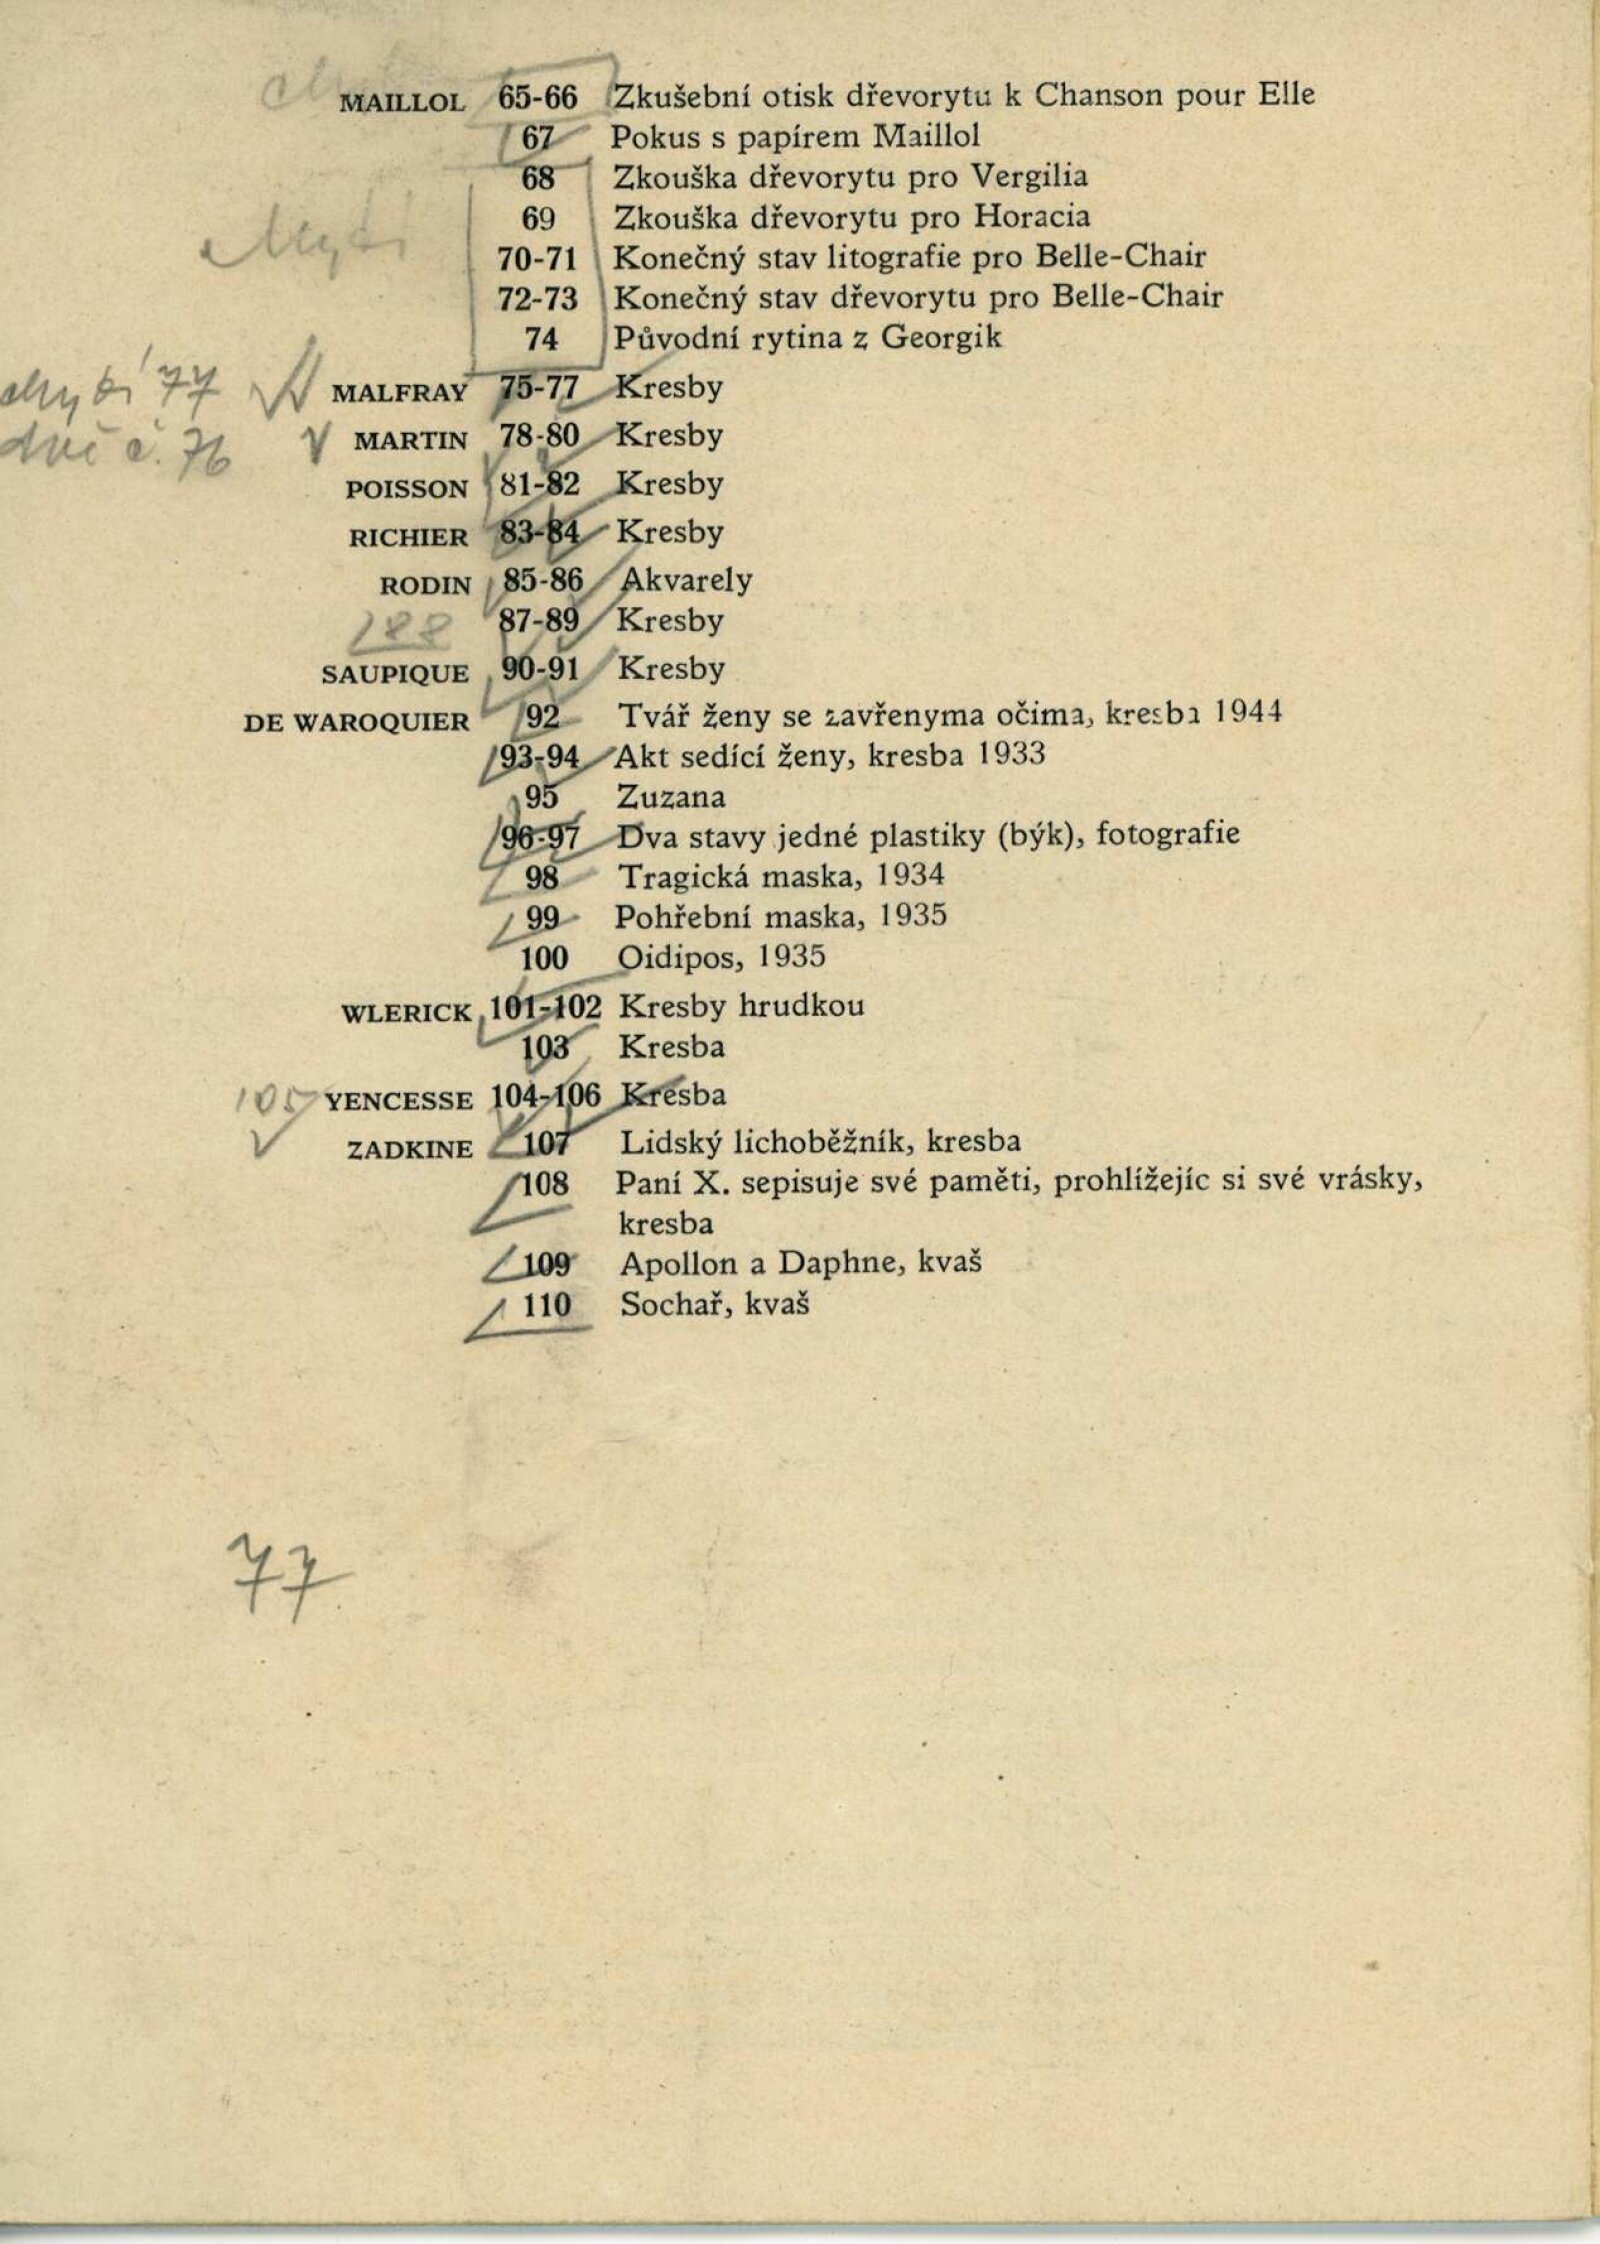 MAILLOL 65-66 Zkušební otisk dřevorytu k Chanson pour Elle
67 Pokus s papírem Maillol
68 Zkouška dřevorytu pro Vergilia
69 Zkouška dřevorytu pro Horacia
chybí
70-71 Konečný stav litografie pro Belle-Chair
72-73 Konečný stav dřevorytu pro Belle-Chair
74 Původní rytina z Georgik
chybí 77 MALFRAY 75-77 Kresby
dvě č. 76 MARTIN 78-80 Kresby
POISSON 81-82 Kresby
RICHIER 83-84 Kresby
RODIN 85-86 Akvarely
188 87-89 Kresby
SAUPIQUE 90-91 Kresby
DE WAROQUIER 92 Tvář ženy se zavřenyma očima, kresba 1944
93-94 Akt sedící ženy, kresba 1933
95 Zuzana
96-97 Dva stavy jedné plastiky (býk), fotografie
98 Tragická maska, 1934
99 Pohřební maska, 1935
100 Oidipos, 1935
WLERICK 101-102 Kresby hrudkou
103 Kresba
105 YENCESSE 104-106 Kresba
ZADKINE 107 Lidský lichoběžník, kresba
108 Paní X. sepisuje své paměti, prohlížejíc si své vrásky,
kresba
109 Apollon a Daphne, kvaš
110 Sochař, kvaš
77